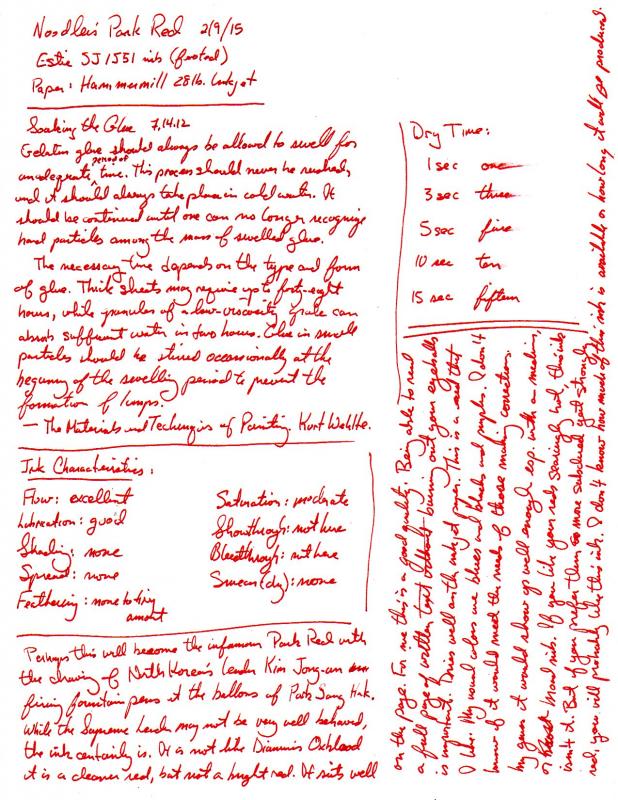 Noodler's Park Red 2/9/15
Estie SJ 1551 nib (firsted)
Paper: Hammermill 28lb. Inkjet
Soaking the Glue 7.14.12
Gelatin glue should always be allowed to swell for
an adequate period of time. This process should never be rushed,
and it should always take place in cold water. It
should be continued until one can no longer recognize
hard particles among the mass of swelled glue.
The necessary time depends on the type and form
of glue. Thick sheets may require up to forty-eight
hours, while granules of a low-viscosity grade can
absorb sufficient water in two hours. Glue in small
particles should be stirred occasionally at the
beginning of the swelling period to prevent the
formation of lumps.
— The Materials and Techniques of Painting. Kurt Wehlte.
Ink Characteristics:
Flow: excellent
Lubrication: good
Shading: none
Spread: none
Feathering: none to tiny
amount
Saturation: moderate
Showthrough: not here
Bleedthrough: not here
Smear (dry): none
Dry Time:
1 sec one
3 sec three
5 sec five
10 sec ten
15 sec fifteen
Perhaps this will become the infamous Park Red with
the drawing of North Korea's Leader Kim Jong-un
firing fountain pens at the ballons of Park Sang Hak.
While the Supreme Leader may not be very well behaved,
the ink certainly is. It is not like Diamine Oxblood
it is a cleaner red, but not a bright red. It sits well
on the page. For me this is a good quality. Being able to read
a full page of written text without burning out your eyeballs
is important. Dries well on the inkjet paper. This is a red that
I like. My usual colors are blues and blacks and purples. I don't
know if it would meet the needs of those making corrections.
My guess it would show up well enough esp. with a medium,
or broad nib. If you like your reds searingly hot, this ink
isn't it. But if you prefer them more subdued yet strongly
red, you will probably like this ink. I don't know how much of this ink is available or how long it will be produced.